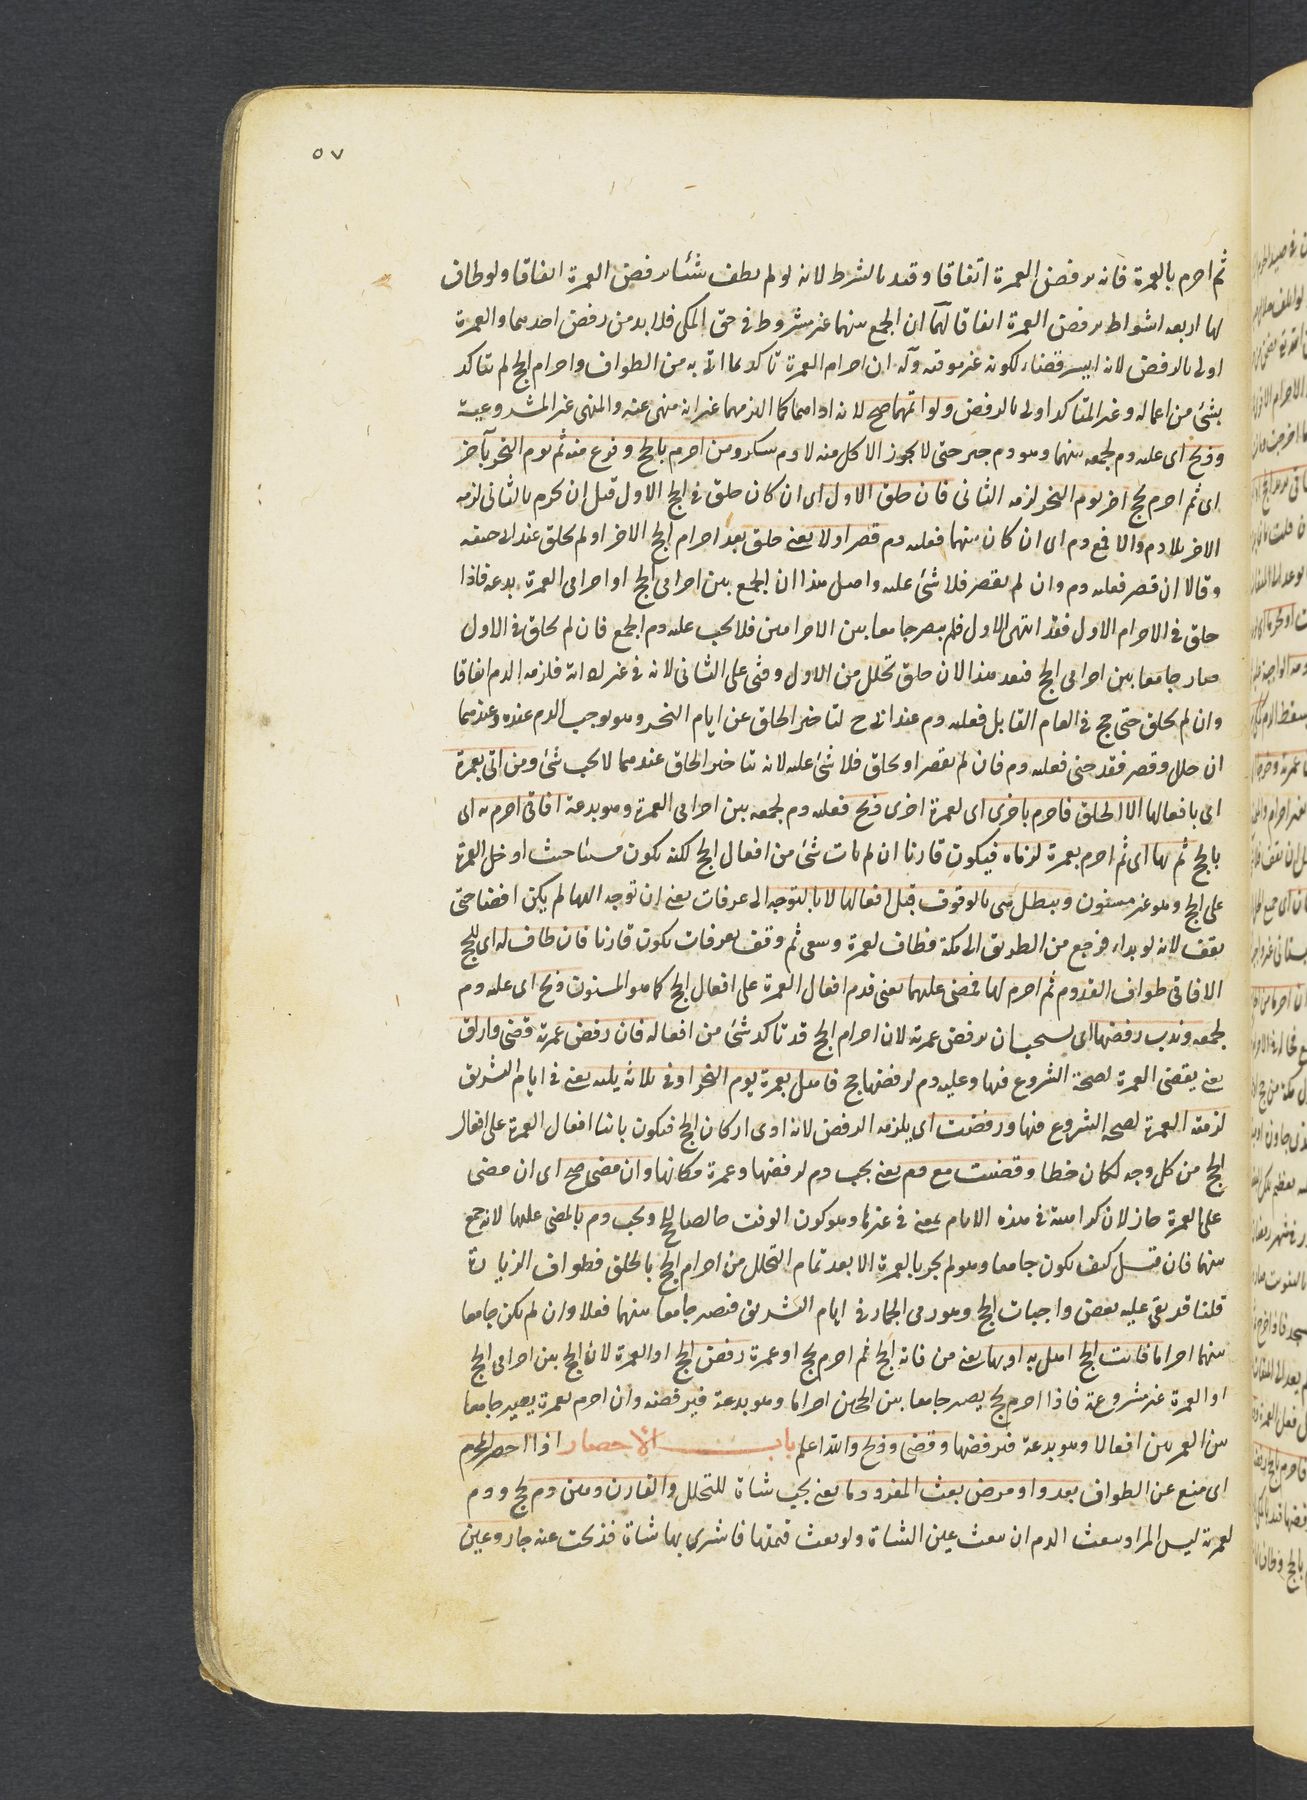 ٥٧
ثم احرم بالعمرة فانه يرفض العمرة اتفاقا وقيد بالشرط لانه لو لم يطف شيئا يرفض العمرة اتفاقا ولو طاف
لها اربعة اشواط يرفض العمرة اتفاقا لهما ان الجمع بينهما غير مشروط في حق المكي فلا بد من رفض احدهما والعمرة
اولى بالرفض لانه ايسر قضاء لكونه غير موقتة وله ان احرام العمرة تاكد بما اتى به من الطواف واحرام الحج لم يتاكد
بشئ من اعماله وغير المتاكد اولى بالرفض ولو اتمهما صح لانه اداهما كما التزمهما غير انه منهى عنه والمنهى غير المشروعية
وذبح اى عليه دم لجمعه بينهما وهو دم جبر حتى لا يجوز الاكل منه لا دم شكر ومن احرم بالحج وفرغ منه ثم يوم النحر بآخر
اى ثم احرم بحج اخر يوم النحر لزمه الثانى فان حلق الاول اى ان كان حلق في الحج الاول قبل ان يحرم بالثانى لزمه
الاخر بلا دم والا فمع دم اى ان كان بينهما فعليه دم قصر اولا يعنى حلق بعد احرام الحج الاخر او لم يحلق عند ابى حنيفة
وقالا ان قصر فعليه دم وان لم يقصر فلا شئ عليه واصل هذا ان الجمع بين احرامى الحج او احرامى العمرة بدعة فاذا
حلق في الاحرام الاول فقد انتهى الاول فلم يصر جامعا بين الاحرامين فلا يجب عليه دم الجمع فان لم يحلق في الاول
صار جامعا بين احرامى الحج فبعد هذا الان حلق تحلل من الاول وجنى على الثانى لانه في غير اوانه فلزمه الدم اتفاقا
وان لم يحلق حتى حج في العام القابل فعليه دم عند ابى ح لتاخير الحلق عن ايام النحر وهو يوجب الدم عنده وعندهما
ان حلل وقصر فقد جنى فعليه دم فان لم يقصر او يحلق فلا شئ عليه لانه بتاخير الحلق عندهما لا يجب شئ ومن اتى بعمرة
اى بافعالها الا الحلق فاحرم باخرى اى لعمرة اخرى ذبح فعليه دم لجمعه بين احرامى العمرة وهو بدعة افاقى احرم به اى
بالحج ثم بها اى ثم احرم بعمرة لزماه فيكون قارنا ان لم يات شئ من افعال الحج لكنه يكون مسيئا حيث ادخل العمرة
على الحج وهو غير مسنون ويبطل هى بالوقوف قبل افعالها لا بالتوجه الى عرفات يعنى ان توجه اليها لم يكن رافضا حتى
يقف لانه لو بداء فرجع من الطريق الى مكة فطاف لعمرة وسعى ثم وقف بعرفات يكون قارنا فان طاف له اى للحج
الافاقى طواف القدوم ثم احرم لها فمضى عليهما يعنى قدم افعال العمرة على افعال الحج كما هو المسنون ذبح اى عليه دم
لجمعه وندب رفضها اى يستحب ان يرفض عمرته لان احرام الحج قد تاكد شئ من افعاله فان رفض عمرته قضى واراق
يعنى يقضى العمرة لصحة الشروع فيها وعليه دم لرفضها حج فاهل بعمرة يوم النحر او في ثلاثة يليه يعنى في ايام التشريق
لزمته العمرة لصحة الشروع فيها ورفضت اى يلزمه الرفض لانه ادى اركان الحج فيكون بانيا افعال العمرة على افعال
الحج من كل وجه لكان خطا وقضيت مع دم يعنى يجب دم لرفضها وعمرة مكانها وان مضى صح اى ان مضى
على العمرة جاز لان كراهته في هذه الايام بمعنى في غيرها وهو كون الوقت خالصا للحج ويجب دم بالمضى عليها لانه جمع
بينهما فان قيل كيف يكون جامعا وهو لم يحرم بالعمرة الا بعد تمام التحلل من احرام الحج بالحلق فطواف الزيارة
قلنا قد بقى عليه بعض واجبات الحج وهو رمى الجمار في ايام التشريق فيصير جامعا بينهما فعلا وان لم يكن جامعا
بينهما احراما فائت الحج اهل به او بها يعنى من فاته الحج ثم احرم بحج او عمرة رفض الحج او العمرة لان الجمع بين احرامى الحج
او العمرة غير مشروعة فاذا احرم بحج يصير جامعا بين الحجين احراما وهو بدعة فيرفضه وان احرم بعمرة يصير جامعا
بين العمرتين افعالا وهو بدعة فيرفضها وقضى وذبح والله اعلم باب الاحصار اذا احصر المحرم
اى منع عن الطواف بعدو او مرض بعث المفرد دما يعنى يجب شاة للتحلل والقارن دمين دم لحج ودم
لعمرته ليس المراد ببعث الدم ان يبعث عين الشاة ولو بعث قيمتها فاشترى بها شاة فذبحت عنه جاز وعين